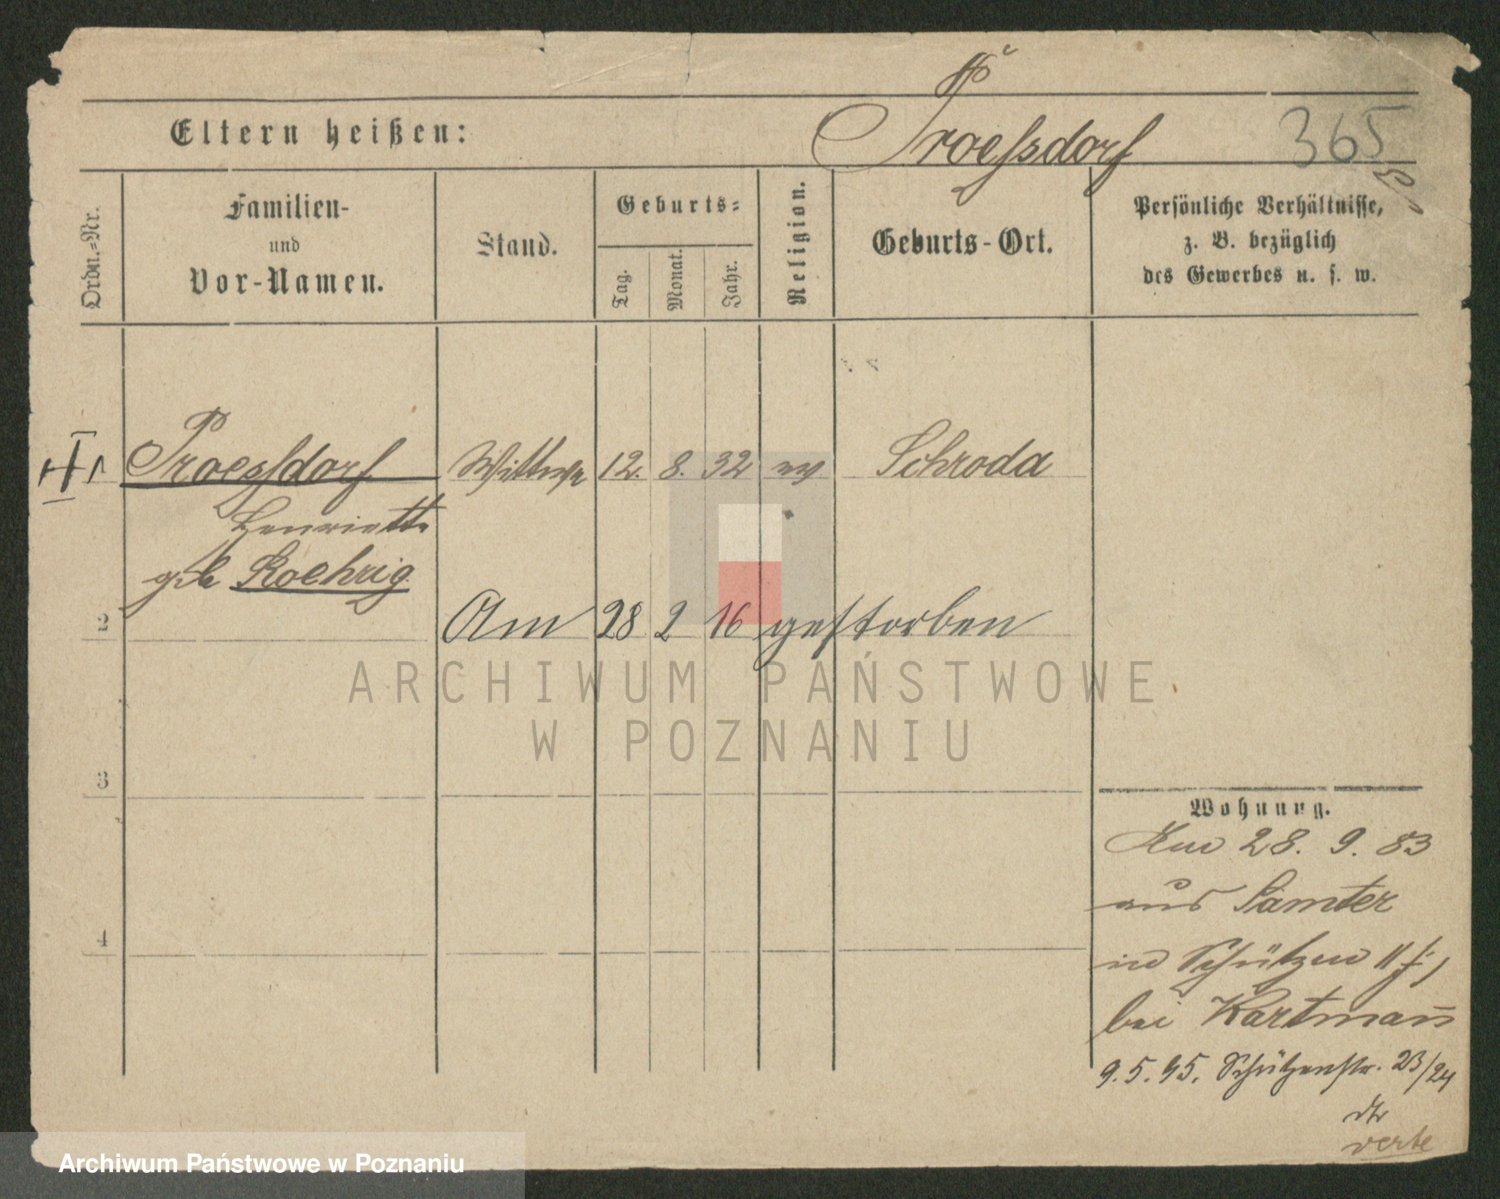 Eltern heißen:
Proeßdorf
365
Ordn.=Nr.
Familien- und Vor-Namen.
Stand.
Geburts=
Tag.
Monat.
Jahr.
Religion.
Geburts-Ort.
Persönliche Verhältnisse,
z. B. bezüglich
des Gewerbes u. s. w.
1
Proeßdorf Wittwe 12. 8. 32 ev Schroda
Henriette
geb Roehrig
2 Am 28 2 16 gestorben
3
4
ARCHIWUM PAŃSTWOWE
W POZNANIU
Wohnung.
Am 28. 9. 83
aus Samter
in Schützen
bei Hartmann
9. 5. 95. Schützenstr. 23/24
verte
Archiwum Państwowe w Poznaniu